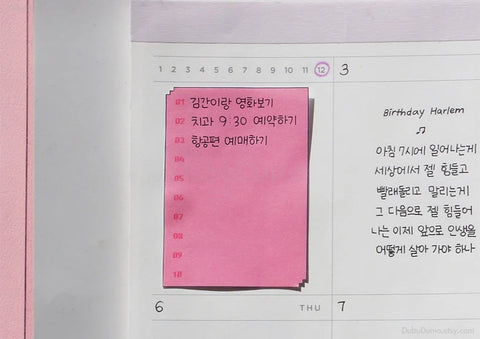 1 2 3 4 5 6 7 8 9 10 11 12
3
01 김간이랑 영화보기
02 치과 9:30 예약하기
03 항공편 예매하기
04
05
06
07
08
09
10
Birthday Harlem
♫
아침 7시에 일어나는게
세상에서 젤 힘들고
빨래돌리고 말리는게
그 다음으로 젤 힘들어
나는 이제 앞으로 인생을
어떻게 살아 가야 하나
6
THU
7
DubuDumo.etsy.com